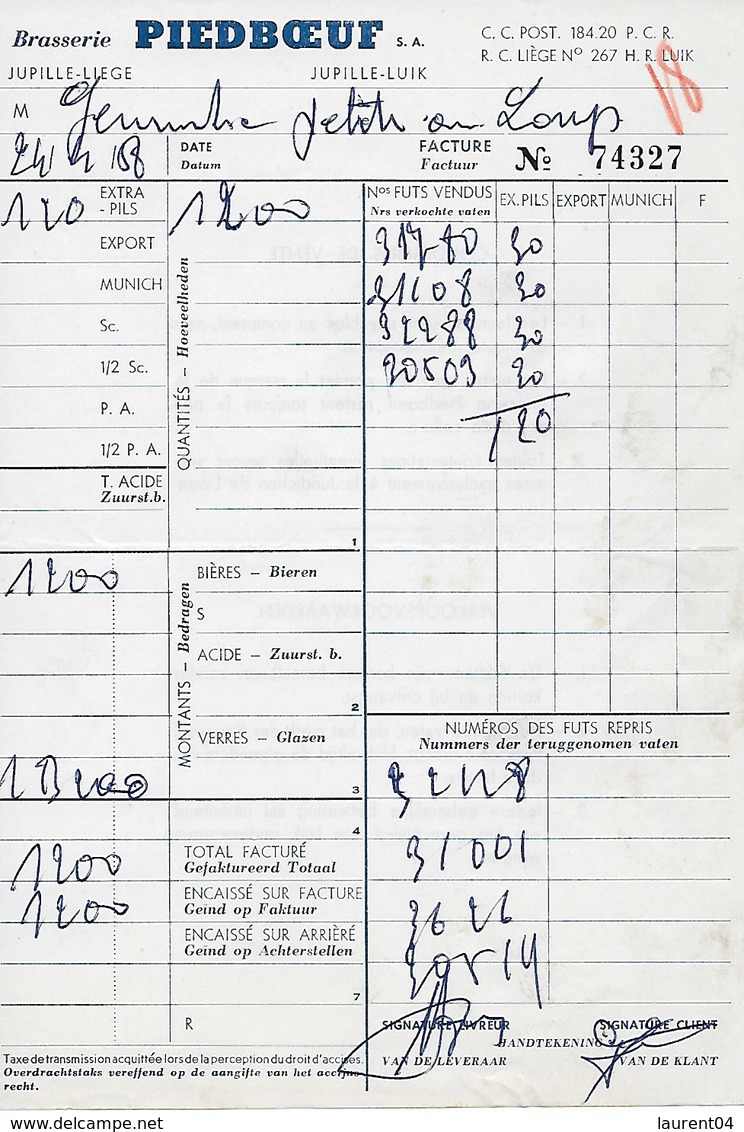 Brasserie PIEDBŒUF S. A.
C. C. POST. 184.20 P. C. R.
R. C. LIÈGE Nº 267 H. R. LUIK
JUPILLE-LIEGE JUPILLE-LUIK
18
M
DATE
Datum
FACTURE
Factuur
Nº 74327
120 EXTRA - PILS 1200
EXPORT
MUNICH
Sc.
1/2 Sc.
P. A.
1/2 P. A.
T. ACIDE
Zuurst.b.
QUANTITÉS – Hoeveelheden
1
Nos FUTS VENDUS
Nrs verkochte vaten
EX. PILS EXPORT MUNICH F
31780 30
31108 30
32288 30
30503 30
120
1200 BIÈRES – Bieren
S
ACIDE – Zuurst. b.
2
VERRES – Glazen
3
MONTANTS – Bedragen
4
1200 TOTAL FACTURÉ
Gefaktureerd Totaal
1200 ENCAISSÉ SUR FACTURE
Geïnd op Faktuur
ENCAISSÉ SUR ARRIÈRÉ
Geïnd op Achterstellen
7
R
NUMÉROS DES FUTS REPRIS
Nummers der teruggenomen vaten
31001
30514
SIGNATURE LIVREUR SIGNATURE CLIENT
HANDTEKENING
VAN DE LEVERAAR VAN DE KLANT
Taxe de transmission acquittée lors de la perception du droit d'accises.
Overdrachtstaks vereffend op de aangifte van het accijns-
recht.
laurent04